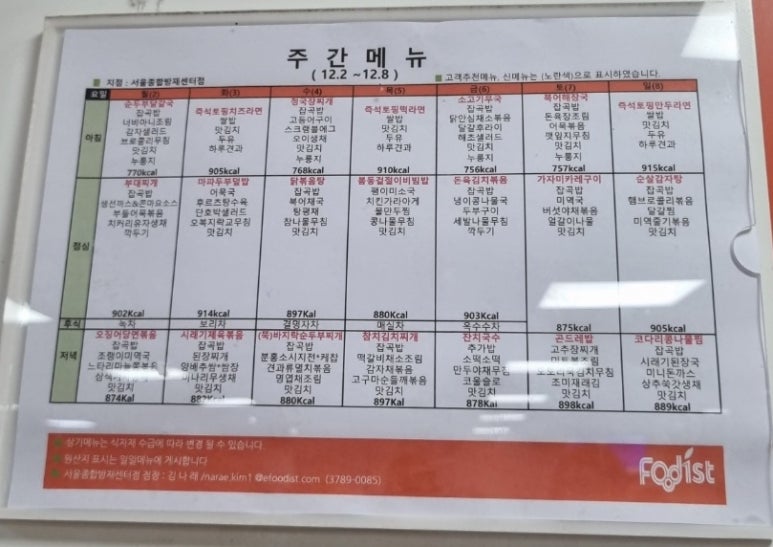 주간메뉴
( 12.2 ~12.8 )
■ 지점 : 서울종합방재센터점
■ 고객추천메뉴, 신메뉴는 (노란색)으로 표시하였습니다.
요일 월(2) 화(3) 수(4) 목(5) 금(6) 토(7) 일(8)
아침
순두부달걀국
너비아니조림
감자샐러드
브로콜리무침
맛김치
누룽지
770kcal
즉석토핑치즈라면
쌀밥
맛김치
두유
하루견과
905kcal
청국장찌개
잡곡밥
고등어구이
스크램블에그
오이생채
맛김치
누룽지
768kcal
즉석토핑떡라면
쌀밥
맛김치
두유
하루견과
910kcal
소고기무국
잡곡밥
닭안심채소볶음
달걀후라이
해초샐러드
맛김치
누룽지
756kcal
북어해장국
잡곡밥
돈육장조림
어묵볶음
깻잎지무침
맛김치
누룽지
757kcal
즉석토핑만두라면
쌀밥
맛김치
두유
하루견과
915kcal
점심
부대찌개
잡곡밥
생선까스&콘마요소스
부들어묵볶음
치커리유자생채
깍두기
902Kcal
마파두부덮밥
어묵국
후르츠탕수육
단호박샐러드
오복지락교무침
맛김치
914kcal
닭볶음탕
잡곡밥
북어채국
탕평채
참나물무침
맛김치
897Kal
봄동겉절이비빔밥
팽이미소국
치킨가라아게
물만두찜
콩나물무침
맛김치
880Kcal
돈육김치볶음
잡곡밥
냉이콩나물국
두부구이
세발나물무침
깍두기
903Kcal
가자미카레구이
잡곡밥
미역국
버섯야채볶음
얼갈이나물
맛김치
875kcal
순살감자탕
잡곡밥
햄브로콜리볶음
달걀찜
미역줄기볶음
맛김치
905kcal
후식 녹차 보리차 결명자차 매실차 옥수수차
저녁
오징어당면볶음
잡곡밥
조랭이미역국
맛김치
874Kal
시래기제육볶음
잡곡밥
된장찌개
양배추쌈*쌈장
미나리무생채
맛김치
(뚝)바지락순두부찌개
잡곡밥
분홍소시지전*케찹
견과류멸치볶음
명엽채조림
맛김치
880Kal
참치김치찌개
잡곡밥
떡갈비채소조림
감자채볶음
고구마순들깨볶음
맛김치
897Kal
잔치국수
추가밥
소떡소떡
만두야채무침
코울슬로
맛김치
878Kal
곤드레밥
고추장찌개
조미재래김
맛김치
898kcal
코다리콩나물찜
잡곡밥
시래기된장국
미니돈까스
상추쑥갓생채
맛김치
889kcal
상기메뉴는 식자재 수급에 따라 변경 될 수 있습니다.
원산지 표시는 일일메뉴에 게시합니다
서울종합방재센터점 점장 : 김 나 래 /narae.kim1@efoodist.com (3789-0085)
Foodist